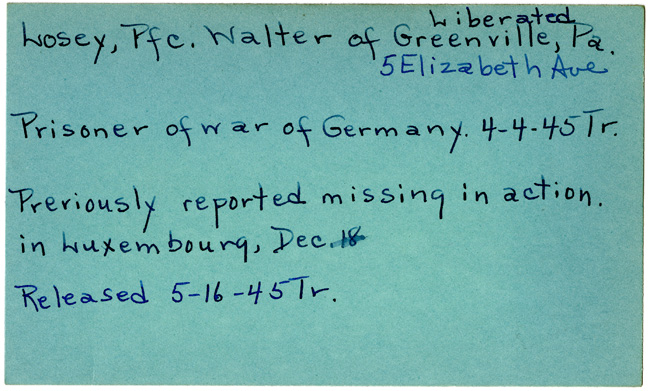 Liberated
Losey, Pfc. Walter of Greenville, Pa.
5 Elizabeth Ave
Prisoner of war of Germany. 4-4-45 Tr.
Previously reported missing in action.
in Luxembourg, Dec. 18
Released 5-16-45 Tr.